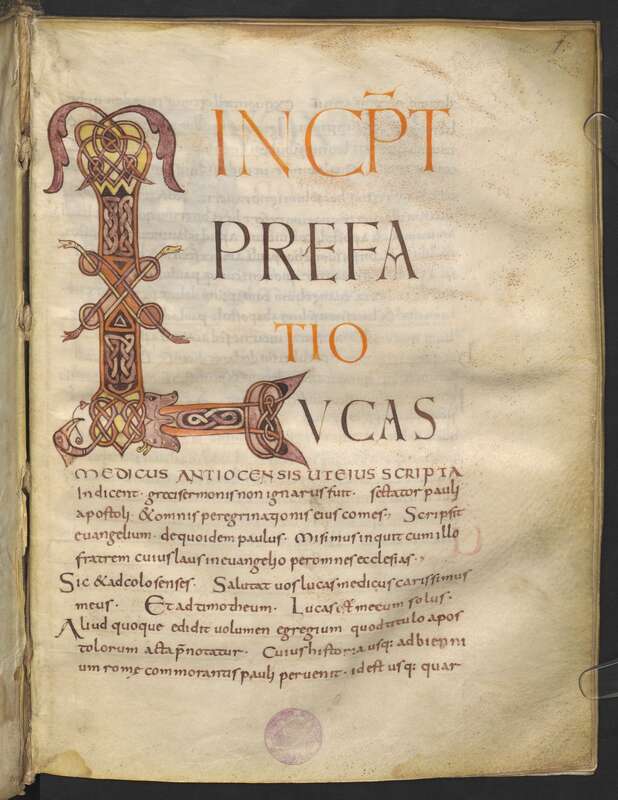 INCP̃T
PREFA
TIO
LVCAS
MEDICUS ANTIOCENSIS UTEIUS SCRIPTA
Indicent· grecisermonis non ignarus fuit· sectator pauli
apostoli· & omnis peregrinationis eius comes; Scripsit
euangelium· de quo idem paulus· Misimus inquit cum illo
fratrem cuius laus in euangelio per omnes ecclesias·,
Sic & ad colosenses· Salutat uos lucas medicus carissimus
meus· Et ad timotheum· Lucas est mecum solus·
Aliud quoque edidit volumen egregium quod titulo apos
tolorum acta p̄notatur· Cuius historia usq: ad bienni
um romę commorantis pauli peruenit· id est usq: quar